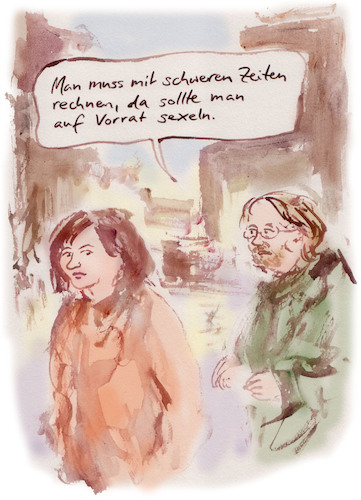 Man muss mit schweren Zeiten
rechnen, da sollte man
auf Vorrat sexeln.